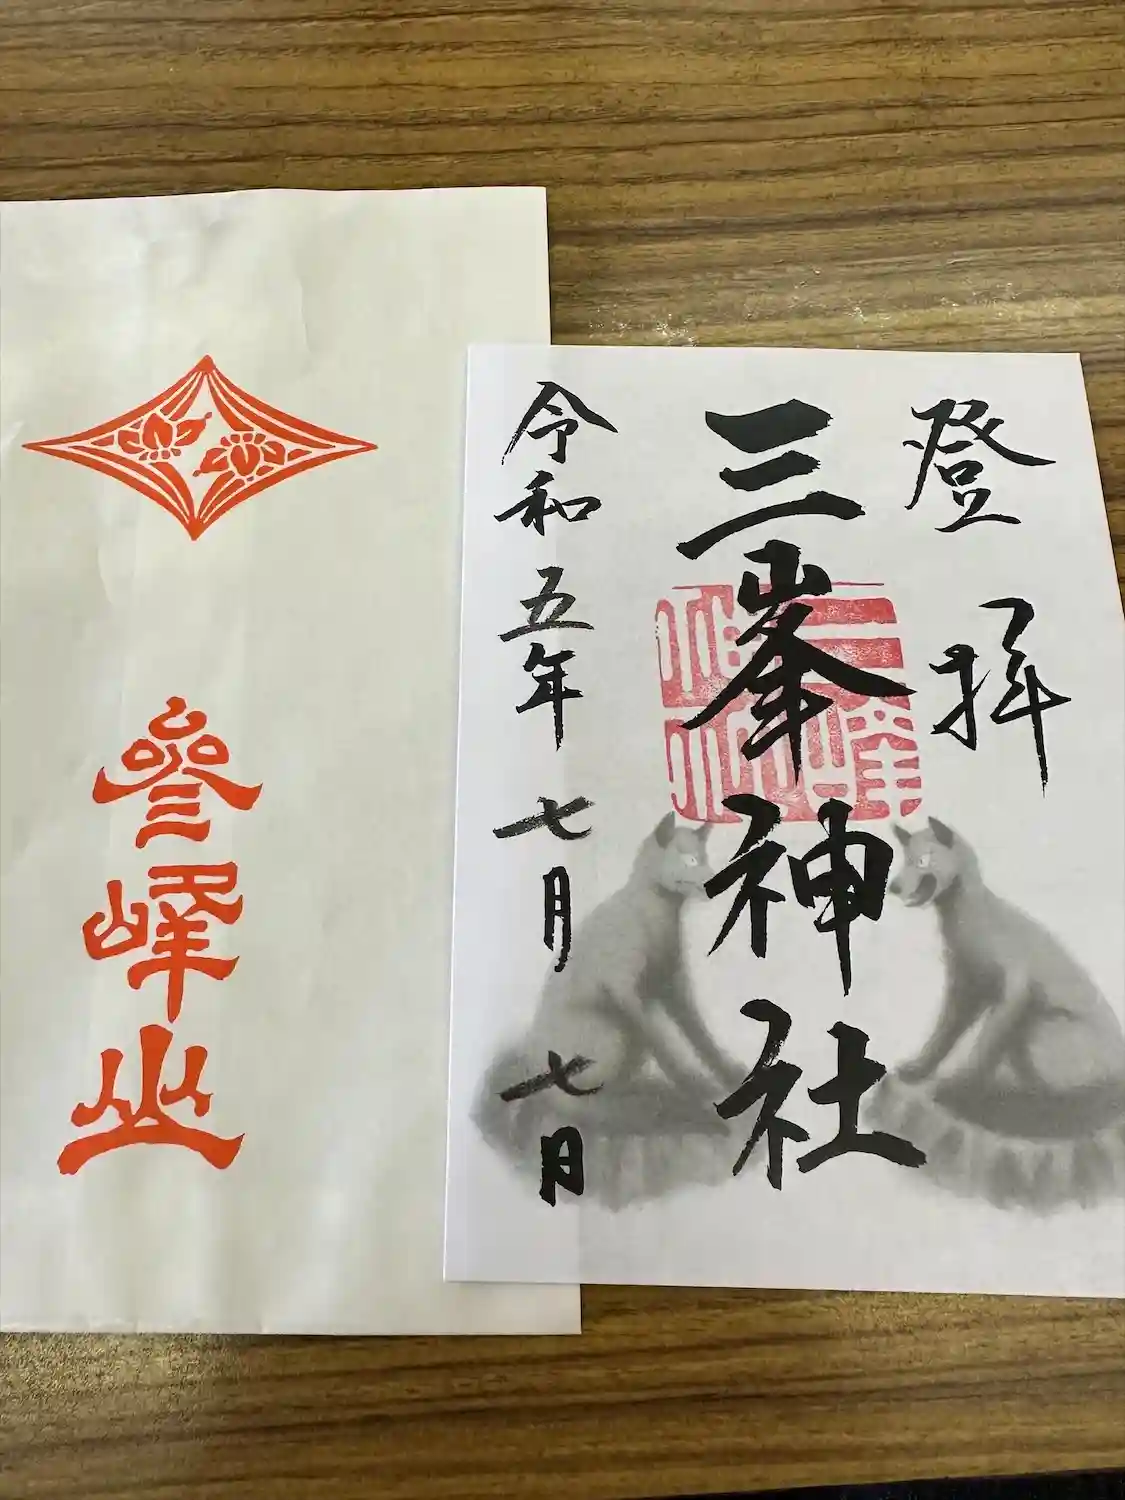 登拝
三峯神社
令和五年七月七日
參峰山